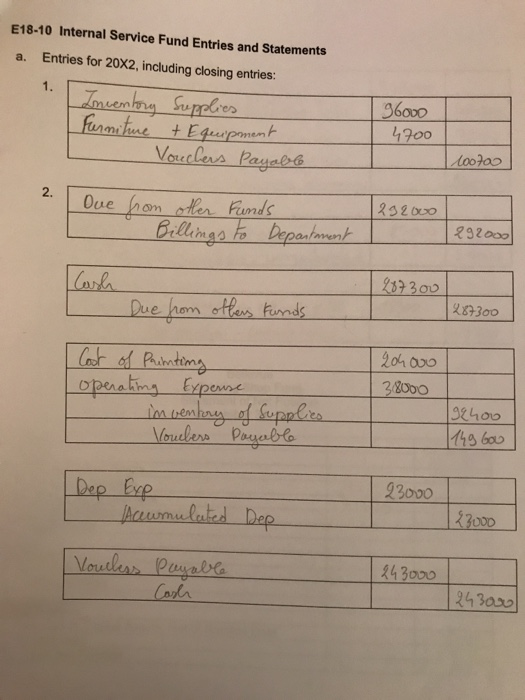 E18-10 Internal Service Fund Entries and Statements
a. Entries for 20X2, including closing entries:
1.
Inventory Supplies 96000
Furniture + Equipment 4700
Vouchers Payable 100700
2.
Due from other Funds 292000
Billings to Department 292000
Cash 287300
Due from others Funds 287300
Cost of Printing 204000
operating Expense 38000
inventory of Supplies 92400
Vouchers Payable 149600
Dep Exp 23000
Accumulated Dep 23000
Vouchers Payable 243000
Cash 243000